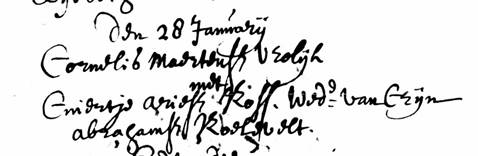 Den 28 Januarij
Cornelis Maertensz Vrolijk
met
Eniertje Ariens Koss. Wed.e van Crijn
Abrahamsz Roelevelt.